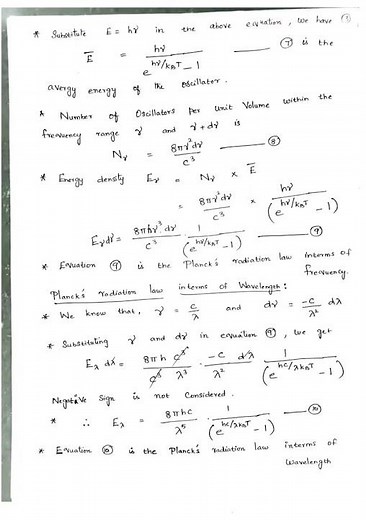 ①
* Substitute E = hγ in the above equation, we have
E̅ = hγ / (e^(hγ/k_BT) − 1) —— ⑦ is the
avergy energy of the Oscillator.
* Number of Oscillators per Unit Volume within the
frequency range γ and γ+dγ is
N_γ = 8πγ²dγ / c³ —— ⑧
* Energy density E_γ = N_γ × E̅
= 8πγ²dγ / c³ × hγ / (e^(hγ/k_BT) − 1)
E_γ dγ = 8πhγ³.dγ / c³ · 1 / (e^(hγ/k_BT) − 1) —— ⑨
* Equation ⑨ is the Planck's radiation law interms of
frequency.
Planck's radiation law interms of Wavelength:
* We know that, γ = c/λ and dγ = −c/λ² dλ
* Substituting γ and dγ in equation ⑨, we get
E_λ dλ = 8πh c³ / c³ λ³ · −c/λ² dλ · 1 / (e^(hc/λk_BT) − 1)
Negative Sign is not Considered.
* ∴ E_λ = 8πhc / λ⁵ · 1 / (e^(hc/λk_BT) − 1) —— ⑩
* Equation ⑩ is the Planck's radiation law interms of
Wavelength